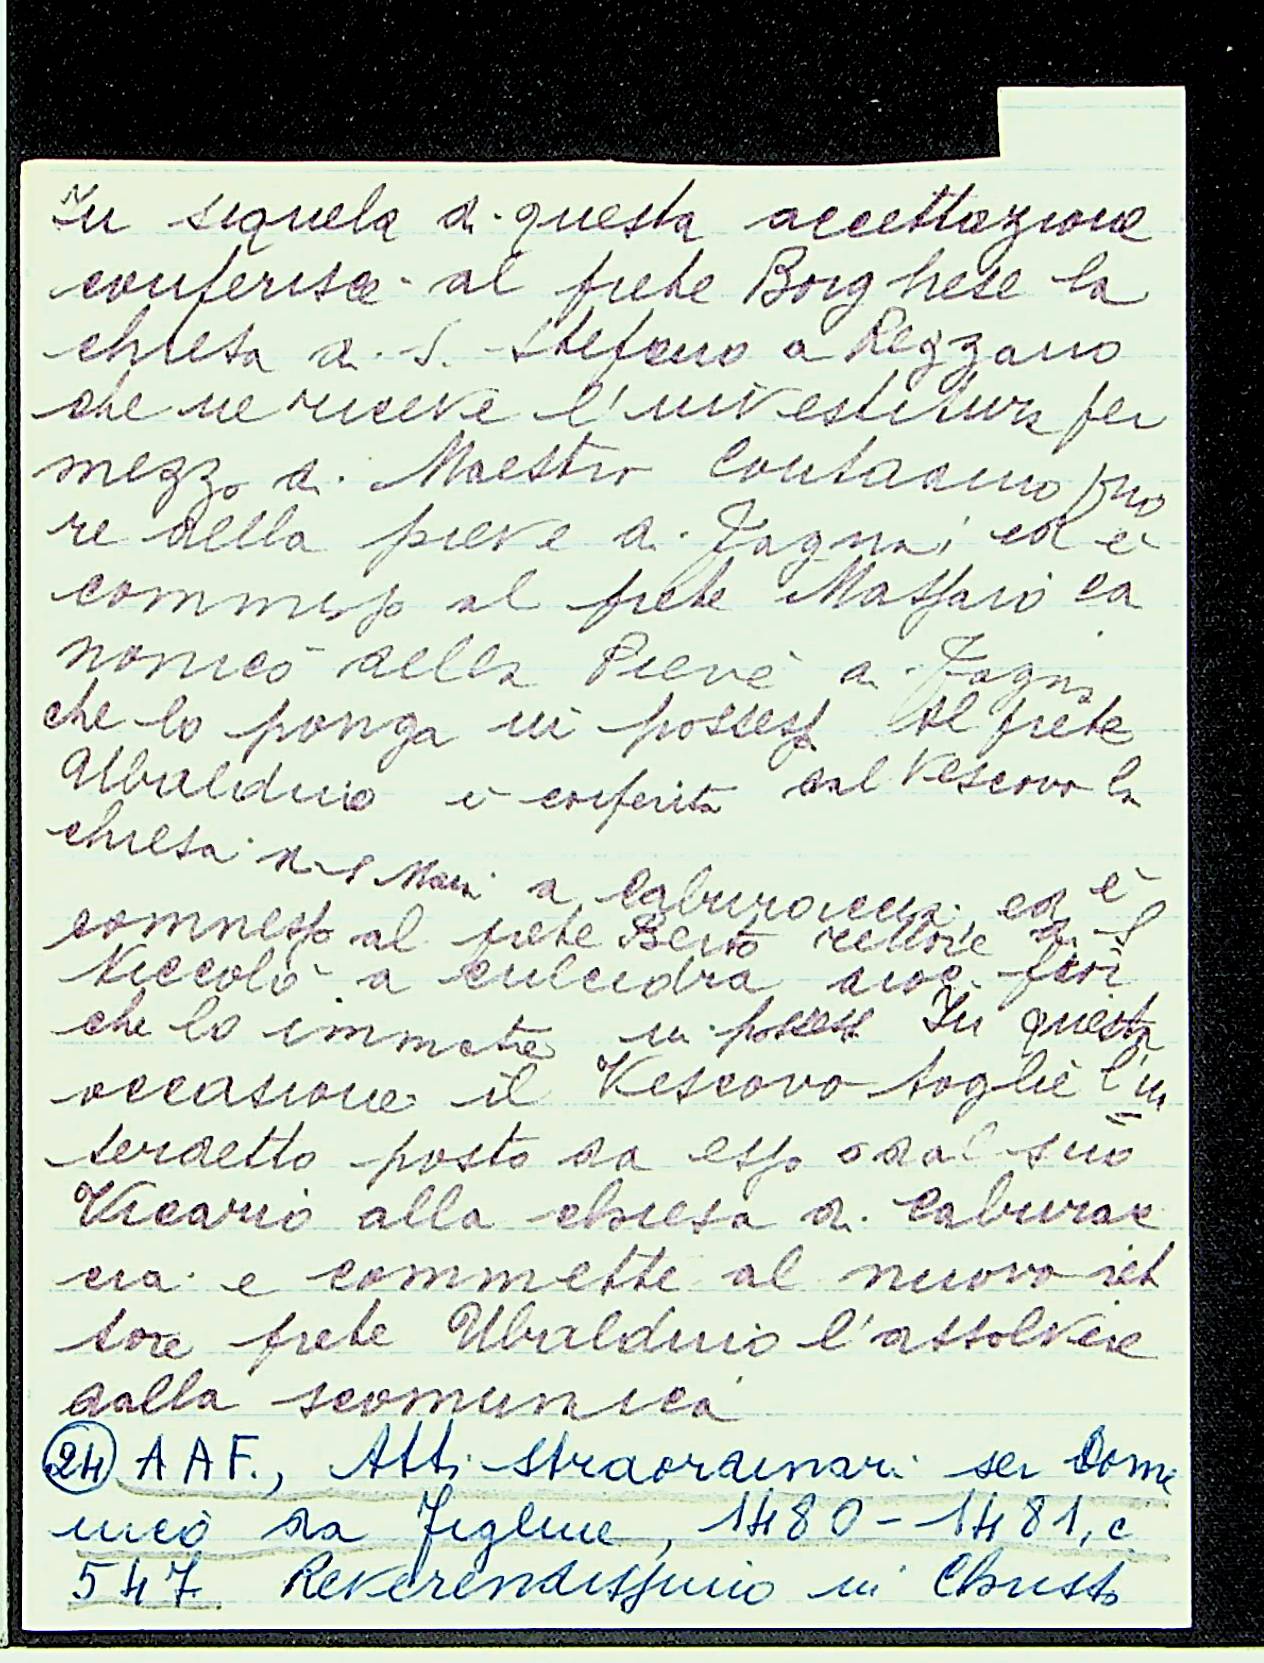 In sequela di questa accettazione
conferisce al prete Borghese la
chiesa di S. Stefano a Rezzano
che ne riceve l'investitura per
mezzo di Maestro Contadino prio
re della pieve di Fagna, ed è
commesso al prete Massaio ca
nonico della Pieve di Fagna
che lo ponga in possesso Al prete
Ubaldino è conferita dal Vescovo la
chiesa di S Maria a Caburaccia ed è
commesso al prete Berto rettore di S
Niccolò a
che lo immetta in possesso In questa
occasione il Vescovo toglie l'in
terdetto posto da esso o dal suo
Vicario alla chiesa di Caburac
cia e commette al nuovo ret
tore prete Ubaldino l'assolvere
dalla scomunica
(24) AAF., Atti straordinari ser Dome
nico da Figline, 1480-1481, c
547 Reverendissimo in Christo